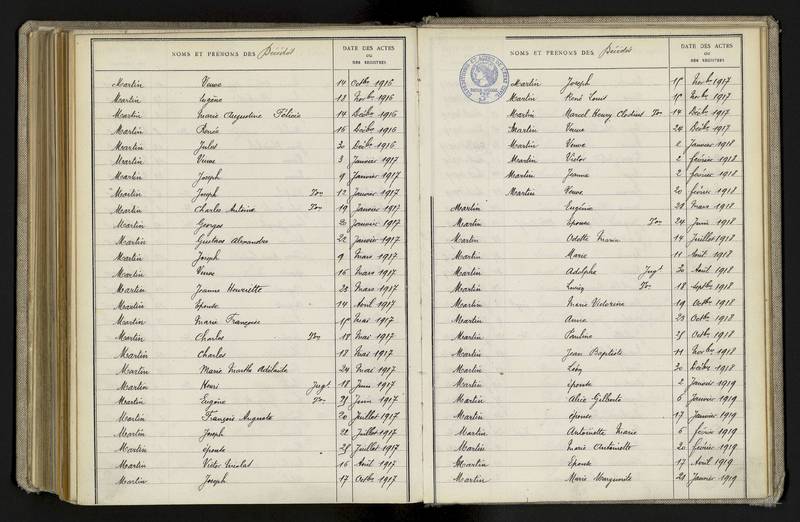 NOMS ET PRENOMS DES Décédés
DATE DES ACTES
OU
DES REGISTRES
Martin Veuve 14 Octbre 1916
Martin Eugène 13 Novbre 1916
Martin Marie Augustine Félicie 14 Décbre 1916
Martin Renée 16 Décbre 1916
Martin Jules 20 Décbre 1916
Martin Veuve 3 Janvier 1917
Martin Joseph 9 Janvier 1917
Martin Joseph Ton 12 Janvier 1917
Martin Charles Antoine Ton 19 Janvier 1917
Martin Georges Janvier 1917
Martin Gustave Alexandre 22 Janvier 1917
Martin Joseph 9 Mars 1917
Martin Veuve 16 Mars 1917
Martin Jeanne Henriette 23 Mars 1917
Martin Epouse 14 Avril 1917
Martin Marie Françoise Mai 1917
Martin Charles Ton 18 Mai 1917
Martin Charles 18 Mai 1917
Martin Marie Marthe Adélaïde 24 Mai 1917
Martin Henri Jugt 18 Juin 1917
Martin Eugène Ton 25 Juin 1917
Martin François Auguste 20 Juillet 1917
Martin Joseph 22 Juillet 1917
Martin épouse 25 Juillet 1917
Martin Victor Nicolas 16 Août 1917
Martin Joseph 17 Octbre 1917
NOMS ET PRENOMS DES Décédés
DATE DES ACTES
OU
DES REGISTRES
Martin Joseph Novbre 1917
Martin René Louis Novbre 1917
Martin Marcel Henry Clodius Ton 14 Décbre 1917
Martin Veuve 24 Décbre 1917
Martin Veuve Janvier 1918
Martin Victor 2 février 1918
Martin Jeanne 2 février 1918
Martin Veuve 20 février 1918
Martin Eugénie 28 Mars 1918
Martin Epouse Ton 24 Juin 1918
Martin Odette Marie 14 Juillet 1918
Martin Marie 11 Août 1918
Martin Adolphe Jugt 20 Août 1918
Martin Lucien Ton 18 Septbre 1918
Martin Marie Victorine 19 Octbre 1918
Martin Anna 23 Octbre 1918
Martin Pauline 25 Octbre 1918
Martin Jean Baptiste 11 Novbre 1918
Martin Léon 30 Décbre 1918
Martin épouse 2 Janvier 1919
Martin Alice Gilberte 6 Janvier 1919
Martin épouse 17 Janvier 1919
Martin Antoinette Marie 6 février 1919
Martin Marie Antoinette 20 février 1919
Martin Epouse 17 Avril 1919
Martin Marie Marguerite 21 Janvier 1919